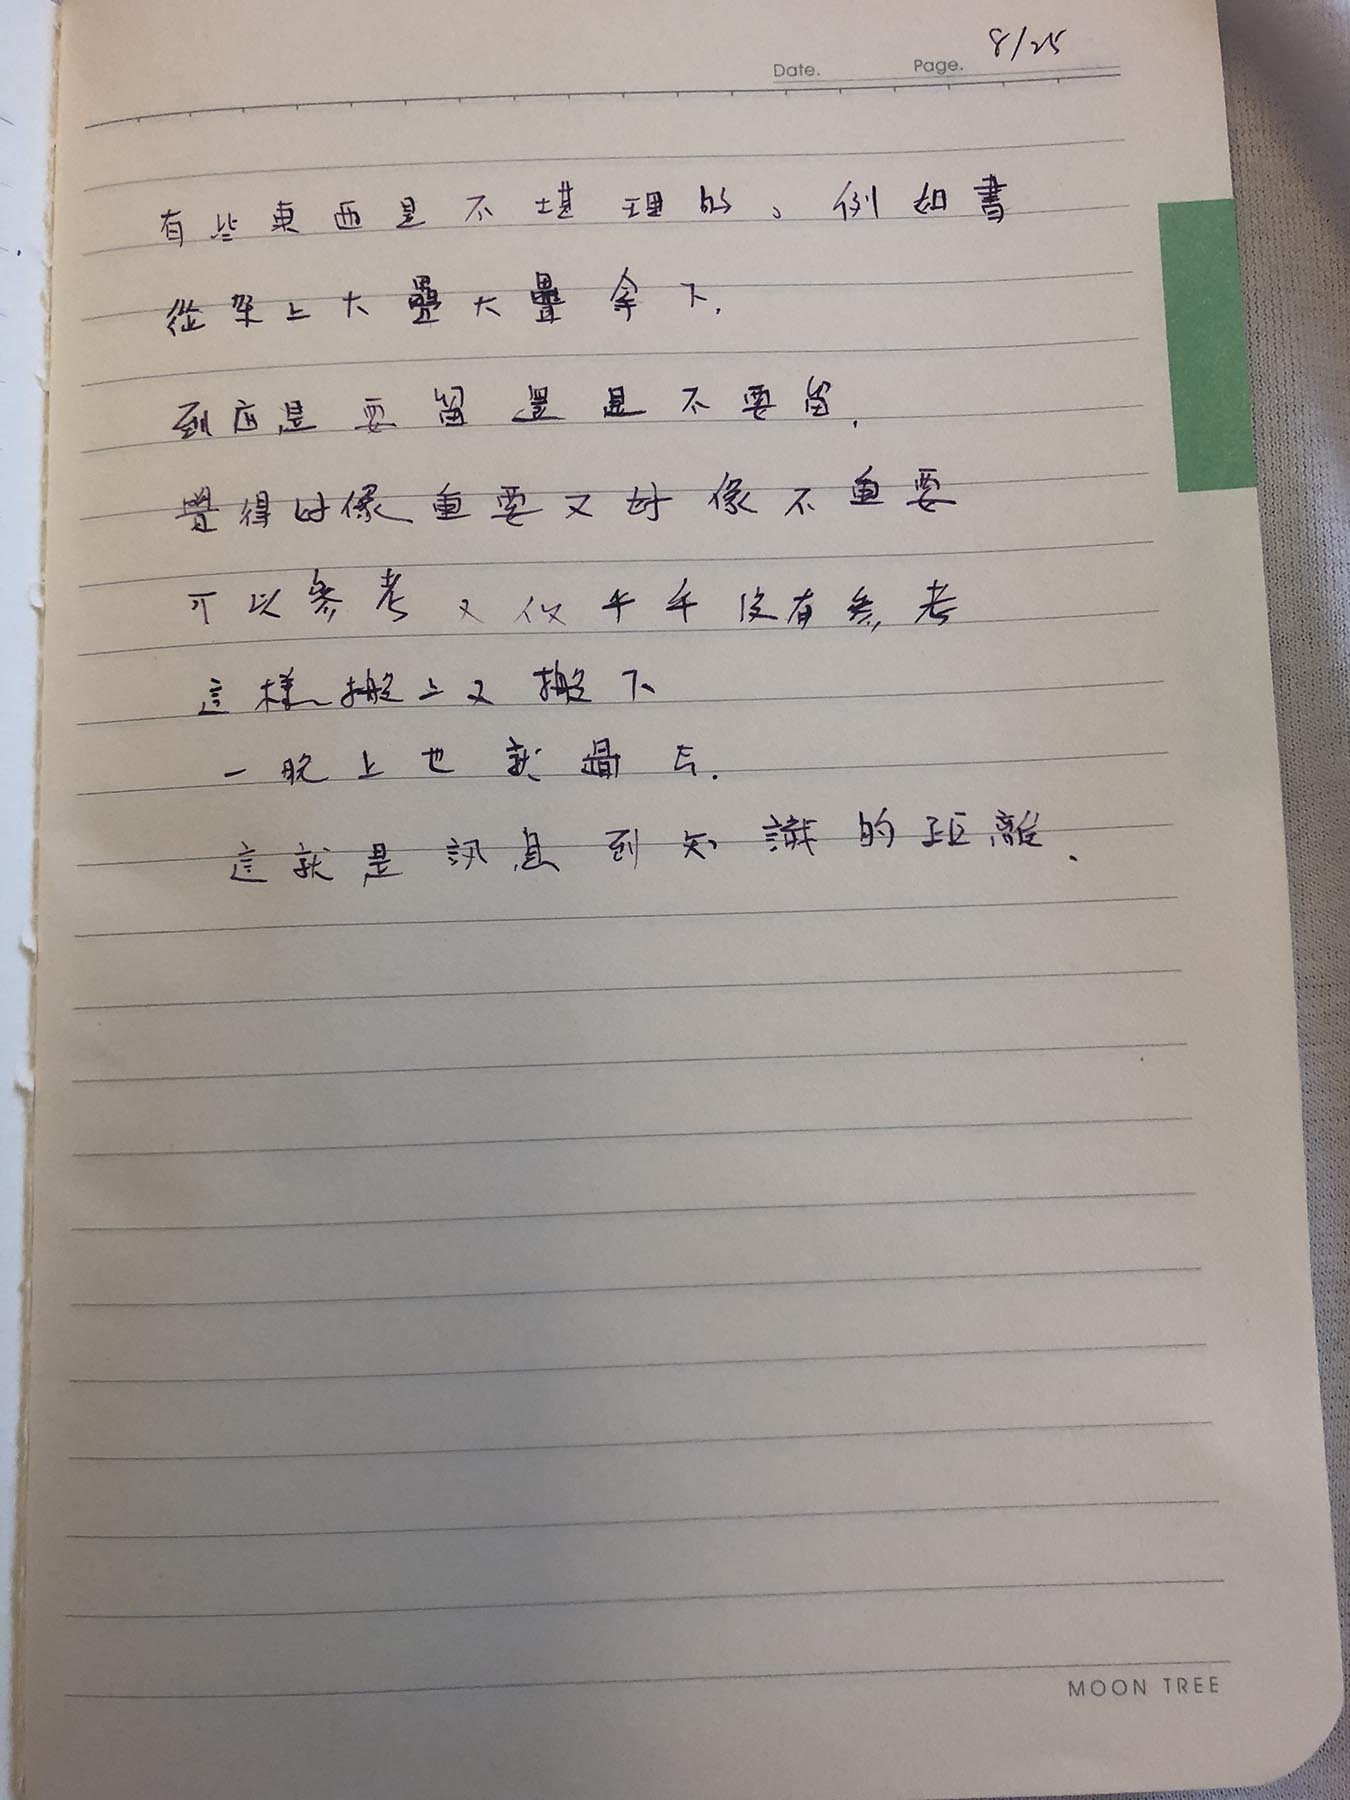 8/25
Date. Page.
有些東西是不堪理的、例如書
從架上大疊大疊拿下.
到底是要留還是不要留.
覺得好像重要又好像不重要
可以參考又似乎乎沒有參考
這樣搬上又搬下
一晚上也就過去.
這就是訊息到知識的距離.
MOON TREE